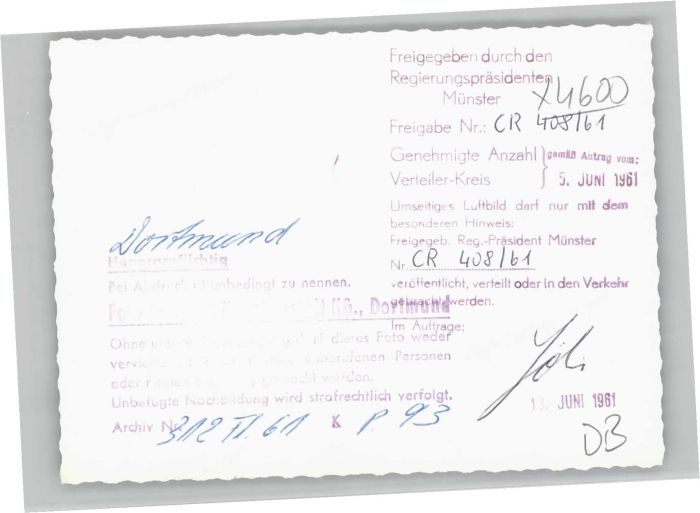 Freigegeben durch den
Regierungspräsidenten
Münster
X4600
Freigabe Nr.: CR 408/61
Genehmigte Anzahl
Verteiler-Kreis
gemäß Antrag vom:
5. JUNI 1961
Umseitiges Luftbild darf nur mit dem
besonderen Hinweis:
Freigegeb. Reg.-Präsident Münster
Nr. CR 408/61
veröffentlicht, verteilt oder in den Verkehr
gebracht werden.
Im Auftrage:
13. JUNI 1961
DB
Dortmund
Honorarpflichtig
Bei Abdruck ist unbedingt zu nennen.
KG., Dortmund
Ohne dieses Foto weder
Personen
oder werden.
Unbefugte Nachbildung wird strafrechtlich verfolgt.
Archiv Nr. 312 VI. 61 K P. 93